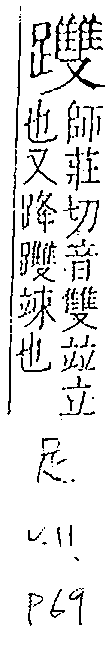 躞
師莊切音雙竝立
也又跭躞竦也
V.11.
P69